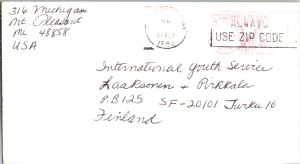 316 Michigan
Mt Pleasant
Mi 48858
USA
ALWAYS
USE ZIP CODE
International Youth Service
Laaksonen + Pirkkala
PB125 SF-20101 Turku 10
Finland